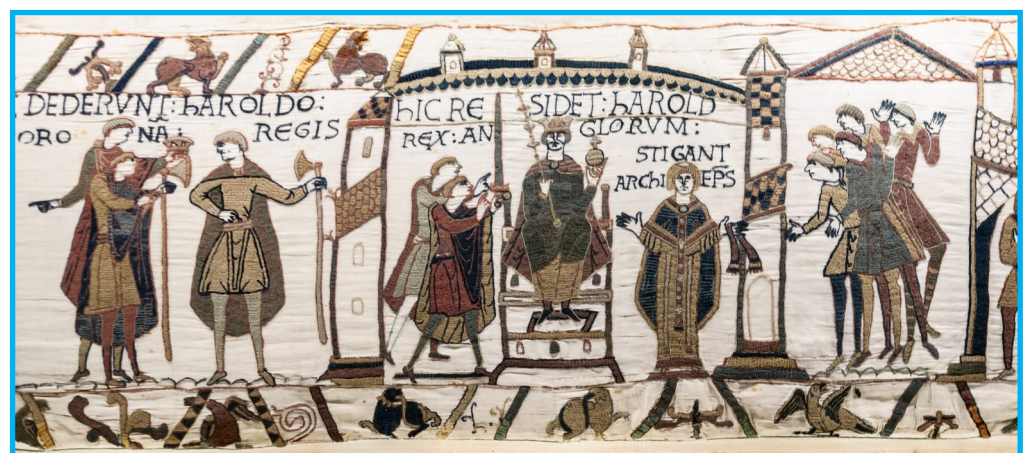 DEDERVNT: hAROLDO:
ORO NA: REGIS
hIC RE SIDET: hAROLD
REX: AN GLORVM:
STIGANT
ARChI EPS